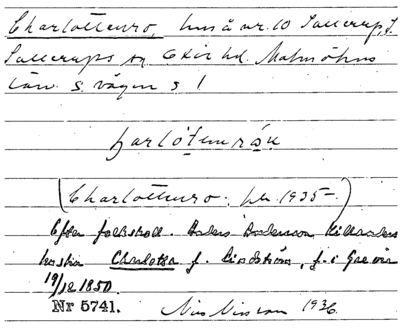 Charlottenro, hus å nr. 10 Sallerup, f.
Sallerups sn Oxie hd. Malmöhus
län. S. vägen s 1
(Charlottenro. 1935-)
Efter folkskoll. Anders
hustru Charlotta f. Lindström, f. i
19/12 1850.
Nr 5741. Nils Nilsson 1936.